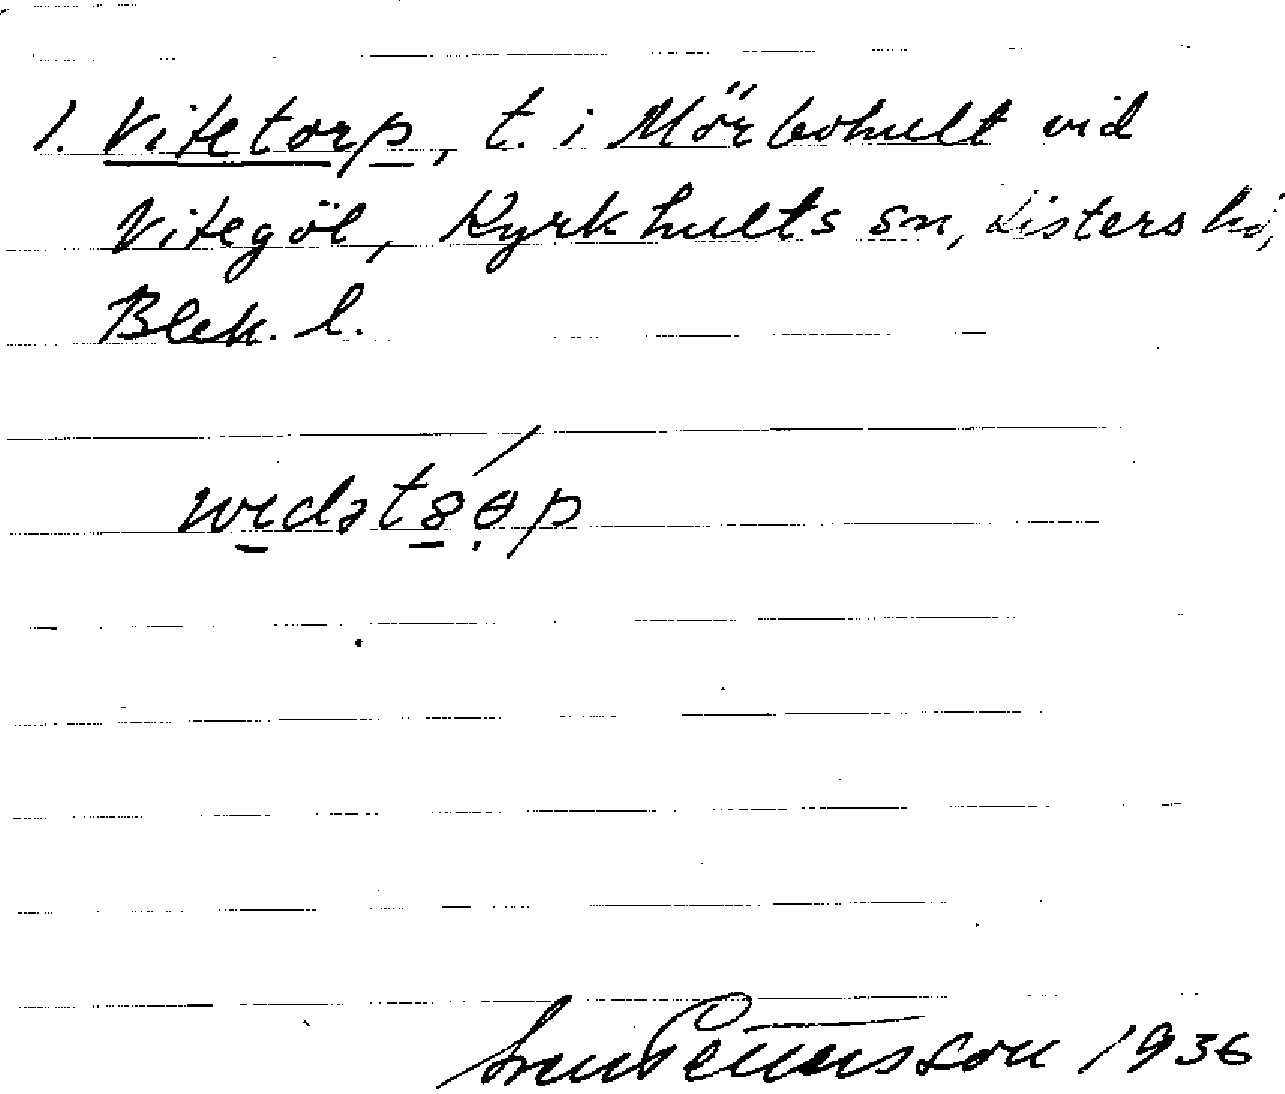 1. Vitetorp, t. i Mörbohult vid
Vitegöl, Kyrkhults sn, Listers hd,
Blek. l.
Sven Pettersson 1936